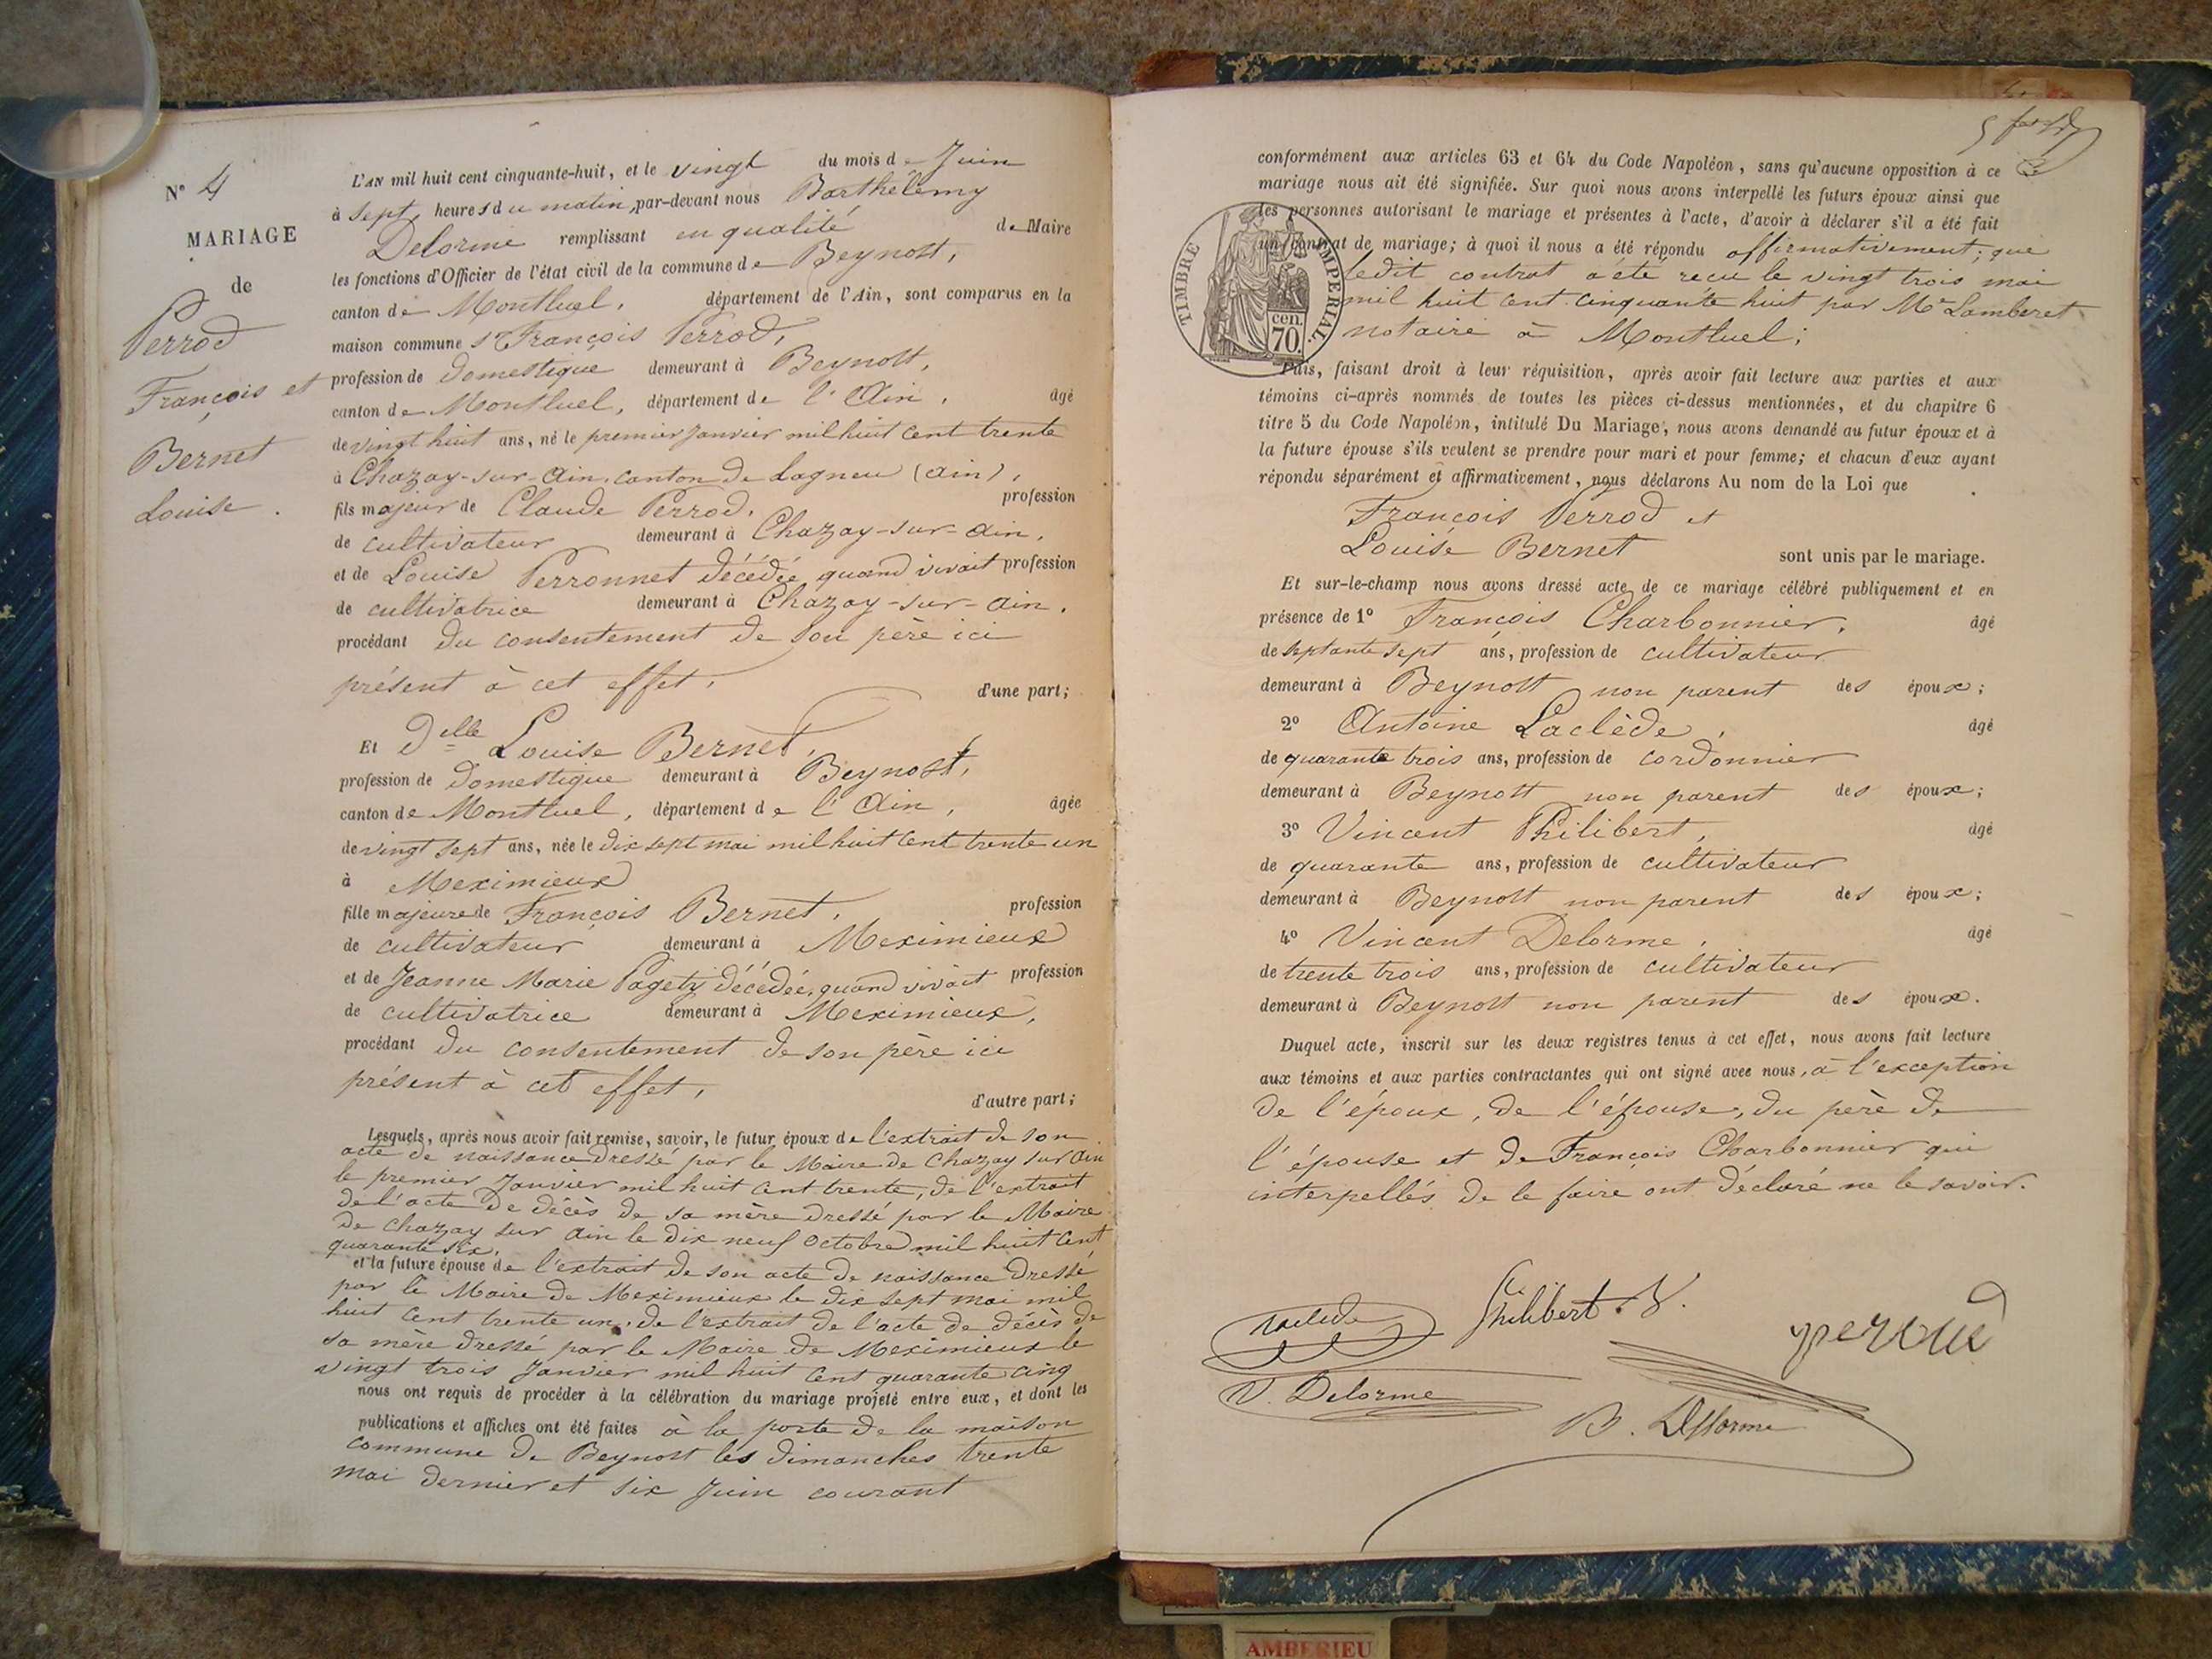 N° 4
MARIAGE
de
Perrod
François et
Bernet
Louise.
L'AN mil huit cent cinquante-huit, et le vingt du mois de Juin
à sept heures du matin, par-devant nous Barthélemy
Delorme remplissant en qualité de Maire
les fonctions d'Officier de l'état civil de la commune de Beynost,
canton de Montluel, département de l'Ain, sont comparus en la
maison commune Sr François Perrod,
profession de domestique demeurant à Beynost,
canton de Montluel, département de l'Ain, âgé
de vingt huit ans, né le premier Janvier mil huit cent trente
à Chazay-sur-Ain, canton de Lagneu (Ain),
fils majeur de Claude Perrod, profession
de cultivateur demeurant à Chazay-sur-Ain,
et de Louise Perronnet décédée quand vivait profession
de cultivatrice demeurant à Chazay-sur-Ain,
procédant du consentement de son père ici
présent à cet effet, d'une part;
Et Delle Louise Bernet,
profession de domestique demeurant à Beynost,
canton de Montluel, département de l'Ain, âgée
de vingt sept ans, née le dix sept mai mil huit cent trente un
à Meximieux
fille majeure de François Bernet, profession
de cultivateur demeurant à Meximieux
et de Jeanne Marie Pagety décédée, quand vivait profession
de cultivatrice demeurant à Meximieux,
procédant du consentement de son père ici
présent à cet effet, d'autre part;
Lesquels, après nous avoir fait remise, savoir, le futur époux de l'extrait de son
acte de naissance dressé par le Maire de Chazay sur Ain
le premier Janvier mil huit cent trente, de l'extrait
de l'acte de décès de sa mère dressé par le Maire
de Chazay sur Ain le dix neuf Octobre mil huit cent
quarante six,
et la future épouse de l'extrait de son acte de naissance dressé
par le Maire de Meximieux le dix sept mai mil
huit cent trente un, de l'extrait de l'acte de décès de
sa mère dressé par le Maire de Meximieux le
vingt trois Janvier mil huit cent quarante cinq
nous ont requis de procéder à la célébration du mariage projeté entre eux, et dont les
publications et affiches ont été faites à la porte de la maison
commune de Beynost les dimanches trente
mai dernier et six Juin courant
conformément aux articles 63 et 64 du Code Napoléon, sans qu'aucune opposition à ce
mariage nous ait été signifiée. Sur quoi nous avons interpellé les futurs époux ainsi que
les personnes autorisant le mariage et présentes à l'acte, d'avoir à déclarer s'il a été fait
un contrat de mariage; à quoi il nous a été répondu affirmativement; que
ledit contrat a été recu le vingt trois mai
mil huit cent cinquante huit par Me Lamberet
notaire à Montluel;
TIMBRE IMPERIAL.
cen.
70.
Puis, faisant droit à leur réquisition, après avoir fait lecture aux parties et aux
témoins ci-après nommés de toutes les pièces ci-dessus mentionnées, et du chapitre 6
titre 5 du Code Napoléon, intitulé Du Mariage, nous avons demandé au futur époux et à
la future épouse s'ils veulent se prendre pour mari et pour femme; et chacun d'eux ayant
répondu séparément et affirmativement, nous déclarons Au nom de la Loi que
François Perrod et
Louise Bernet sont unis par le mariage.
Et sur-le-champ nous avons dressé acte de ce mariage célébré publiquement et en
présence de 1° François Charbonnier, âgé
de septante sept ans, profession de cultivateur
demeurant à Beynost non parent des époux;
2° Antoine Laclède, âgé
de quarante trois ans, profession de cordonnier
demeurant à Beynost non parent des époux;
3° Vincent Philibert, âgé
de quarante ans, profession de cultivateur
demeurant à Beynost non parent des époux;
4° Vincent Delorme, âgé
de trente trois ans, profession de cultivateur
demeurant à Beynost non parent des époux.
Duquel acte, inscrit sur les deux registres tenus à cet effet, nous avons fait lecture
aux témoins et aux parties contractantes qui ont signé avec nous, à l'exception
de l'époux, de l'épouse, du père de
l'épouse et de François Charbonnier qui
interpellés de le faire ont déclaré ne le savoir.
Laclede
Philibert. V.
peroud
V. Delorme
B. Delorme
AMBERIEU